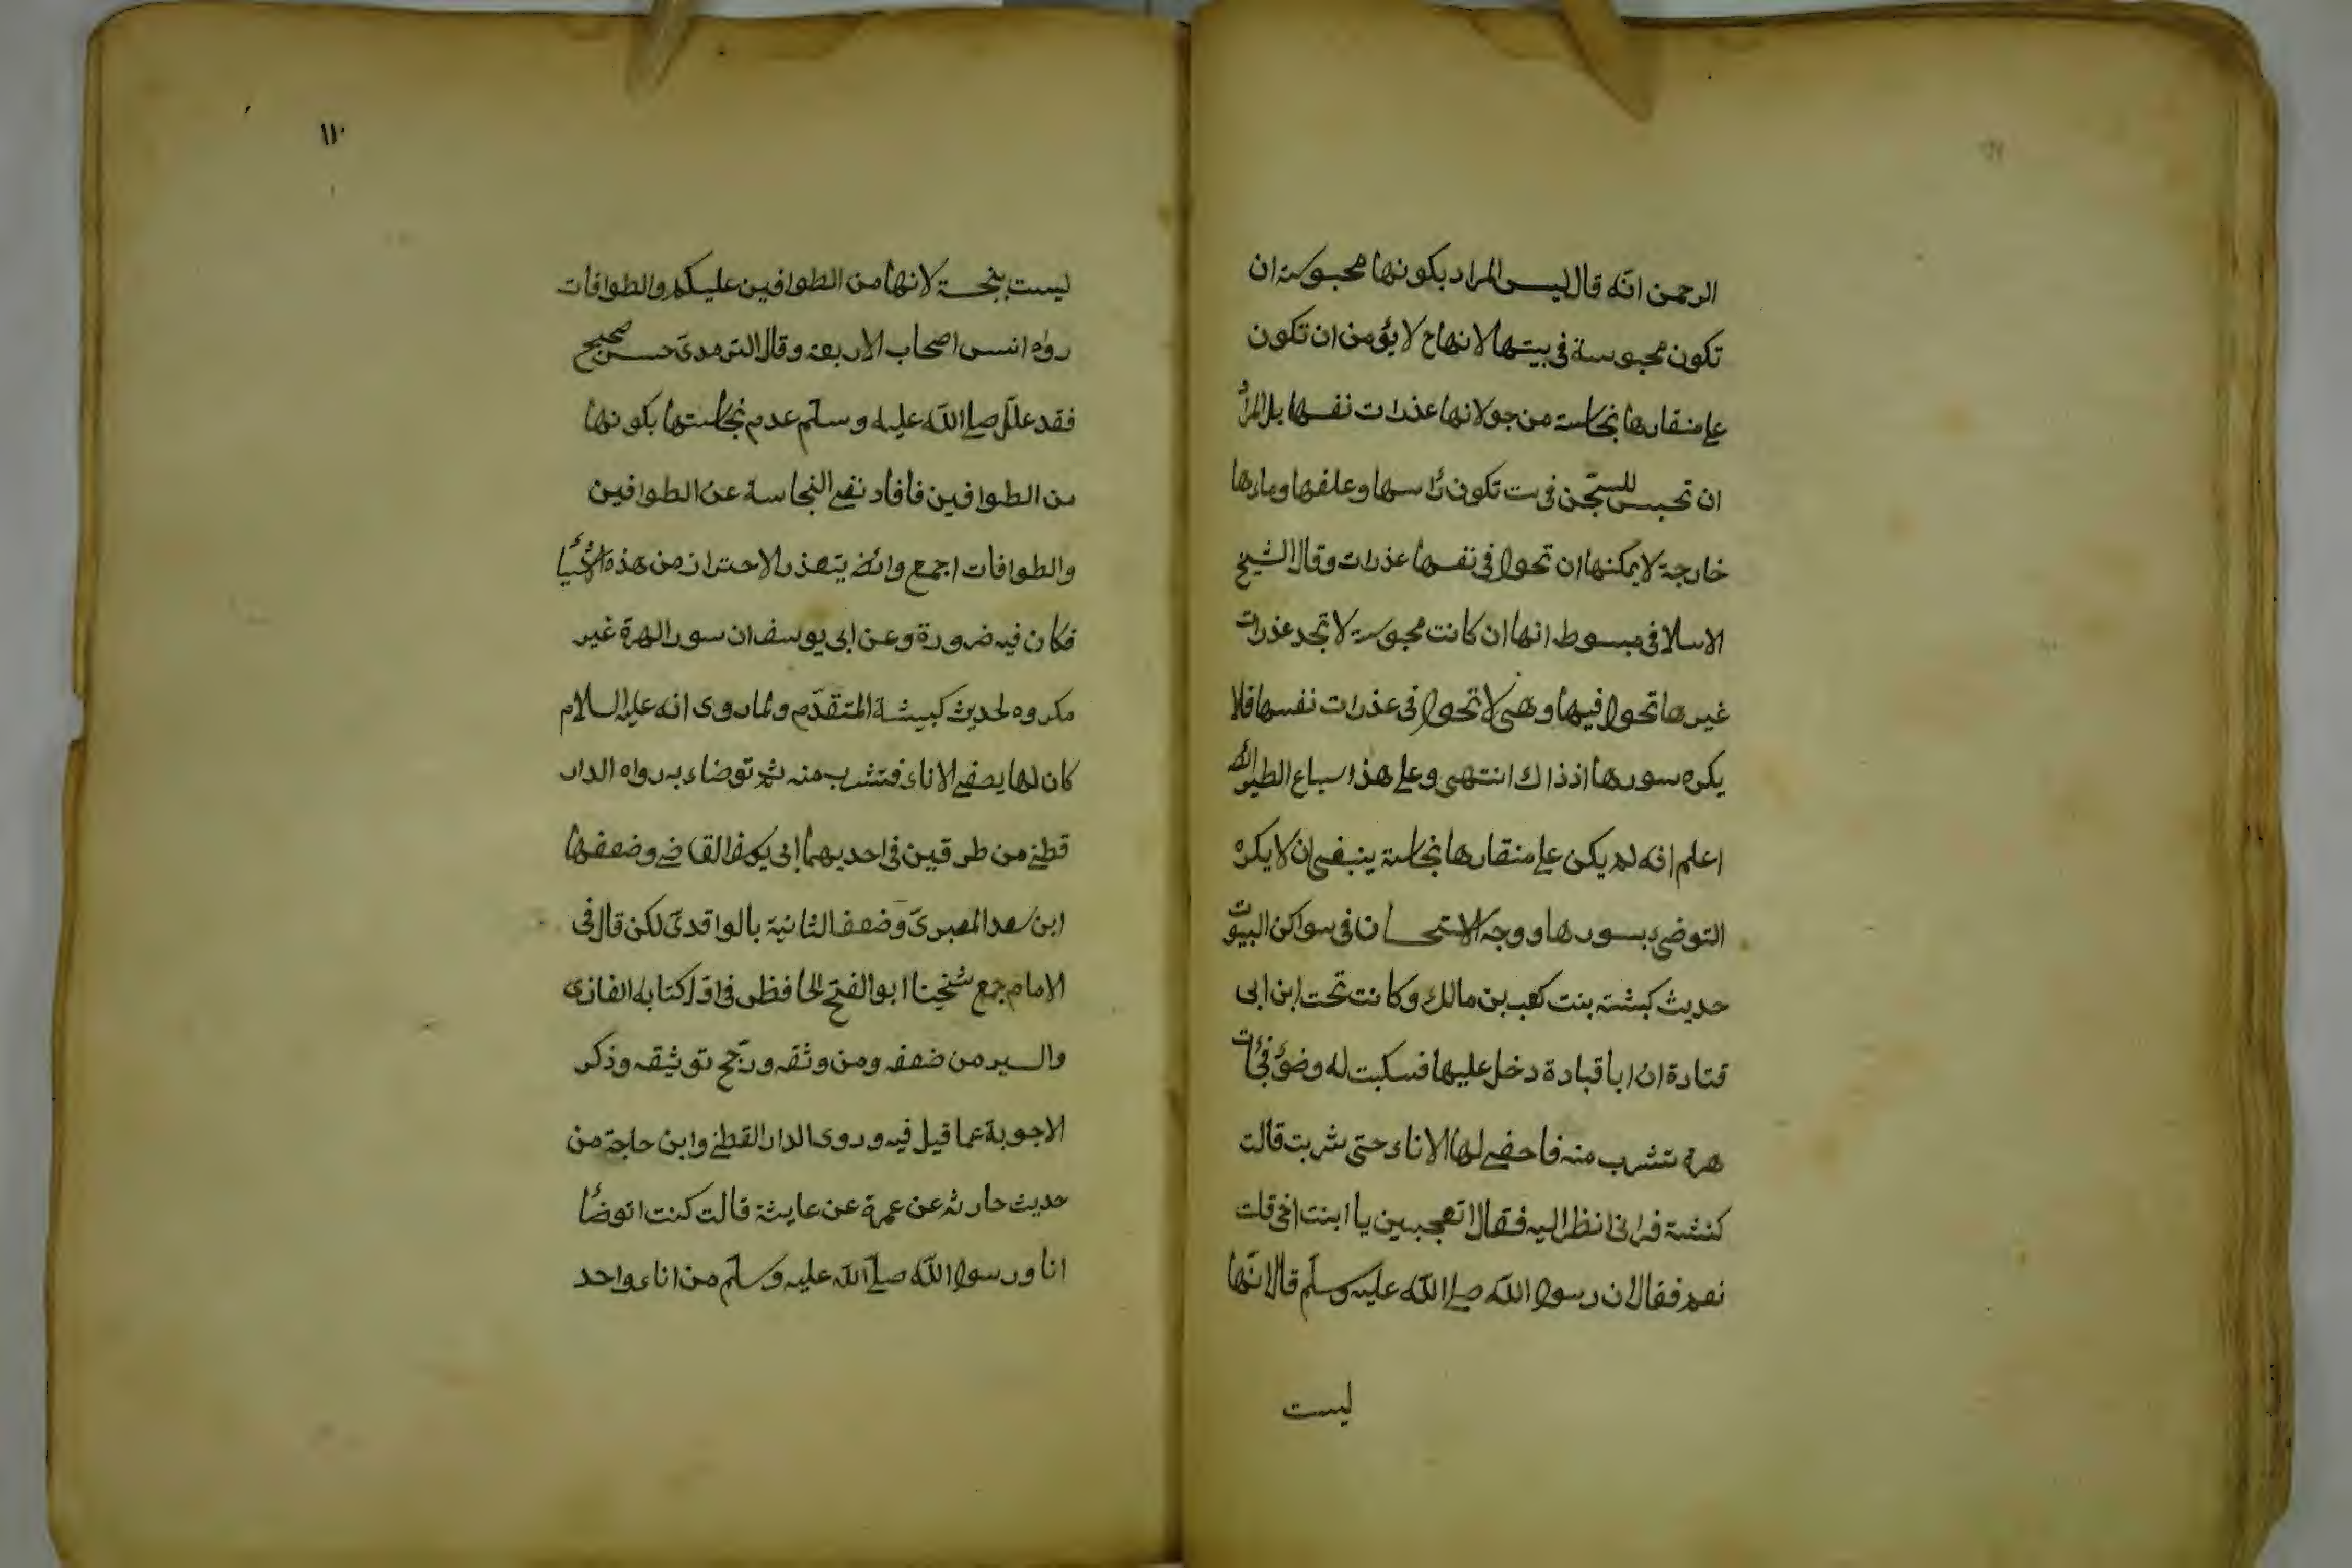 الرحمن انّه قال ليس المراد بكونها محبوسة ان
تكون محبوسة في بيتها لانها ح لا يؤمن ان تكون
على منقارها نجاسة من جولانها عذرات نفسها بل المرأ
ان تحبس للسجّن في بيت تكون رأسها وعلفها وماءها
خارجة لا يمكنها ان تحول في نفسها عذرات وقال الشيخ
الاسلا في مبسوط انها ان كانت محبوسة لا تجد عذرات
غيرها تحول فيها وهي لا تحول في عذرات نفسها فلا
يكره سورها اذ ذاك انتهى وعلى هذا سباع الطيور
اعلم انه لم يكن على منقارها نجاسة ينبغي ان لا يكره
التوضي بسورها ووجه الاستحسان في سواكن البيوت
حديث كبشته بنت كعب بن مالك وكانت تحت ابن ابي
قتادة ان ابا قبادة دخل عليها فسكبت له وضؤ فجأت
هرة تشرب منه فاحفى لها الاناء حتى شربت قالت
كنشة فرانى انظر اليه فقال اتعجبين يا ابنت اخى قلت
نعم فقال ان رسول الله صلى الله عليه وسلّم قال انّها
ليست
١١٠
ليست بنجسة لانها من الطوافين عليكم والطوافات
رواه انس اصحاب الاربعة وقال الترمدىّ حسن صحيح
فقد علّل صلى اللّه عليه وسلّم عدم نجاستها بكونها
من الطوافين فافاد نفى النجاسة عن الطوافين
والطوافات اجمع وائضا يتعذر الاحتراز من هذه الاشيأ
فكان فيه ضرورة وعن ابى يوسف ان سور الهرة غير
مكروه لحديث كبيشة المتقدّم ولما روى انه عليه السلام
كان لها يصفى الاناء فتشرب منه ثم توضاء به رواه الدار
قطنى من طرقين في احديهما ابى يوسف القاضى وضعفها
ابن سعد المعبرىّ وضعف الثانية بالواقدىّ لكن قال فى
الامام جمع شيخنا ابو الفتح الحافظ فى اوّل كتابه الغازى
والسير من ضعفه ومن وثقه ورجّح توثيقه وذكر
الاجوبة عما قيل فيه وروى الدار القطنى وابن حاجة من
حديث حارثه عن عمرة عن عايشة قالت كنت اتوضأ
انا ورسول اللّه صلّى اللّه عليه وسلّم من اناء واحد